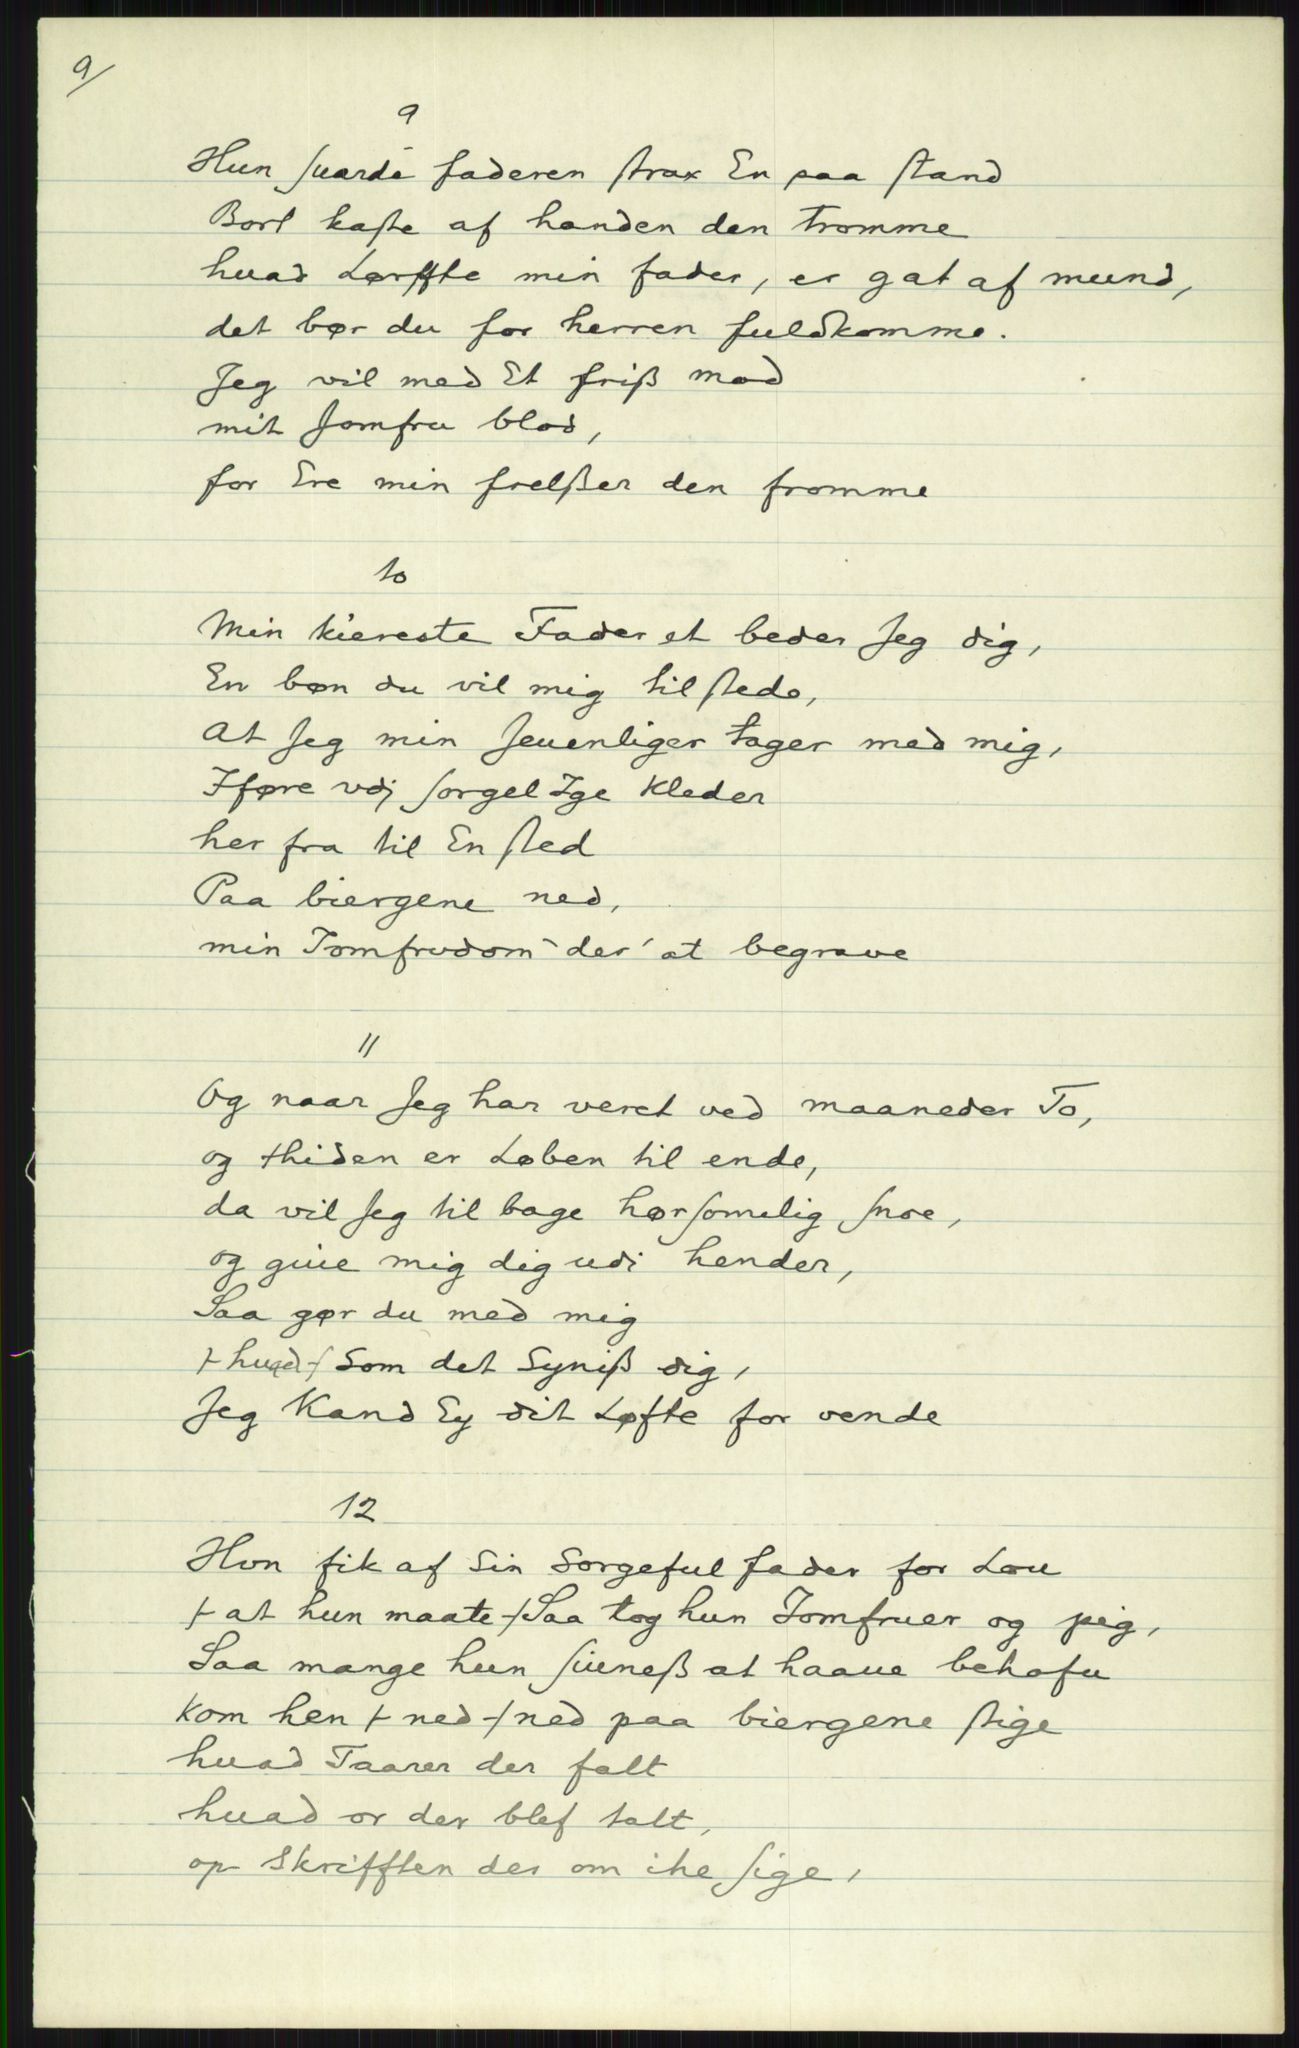 9/
9
Hun suarde faderen strax En paa stand
Bort kaste af handen den tromme
huad Lørffte min fader, er gat af mund,
det bør du for herren fuldkomme.
Jeg vil med Et friß mod
mit Jomfru blod,
for Ere min frelßer den fromme
10
Min kiereste Fader et beder Jeg dig,
En bøn du vil mig til stede,
At Jeg min Jeuenliger tager med mig,
Iføre vdj sorgel Ige Kleder
her fra til En sted
Paa biergene ned,
min Jomfrudom der at begrave
11
Og naar Jeg har veret ved maaneder To,
og thiden er Løben til ende,
da vil Jeg til bage hørsomelig snoe,
og giue mig dig udi hender,
Saa gør du med mig
⊢ huad ⊣ Som det Syniß dig,
Jeg Kand Ey dit Løfte for vende
12
Hvn fik af Sin Sorgeful fader for Lou
⊢ at hun maate ⊣ Saa tog hun Jomfruer og pig,
Saa mange hun siuneß at haaue behofu
kom hen ⊢ ned ⊣ ned paa biergene stige
huad Taarer der falt
huad or der blef talt,
op Skrifften der om ike sige,